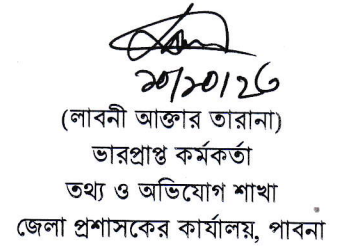 ২০/১০/২৬
(লাবনী আক্তার তারানা)
ভারপ্রাপ্ত কর্মকর্তা
তথ্য ও অভিযোগ শাখা
জেলা প্রশাসকের কার্যালয়, পাবনা